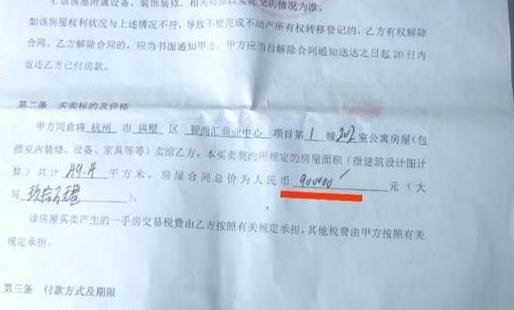 该房屋所属设备、装饰装修、相关
情况为准。
如该房屋权利状况与上述情况不符，导致不能完成不动产所有权转移登记的，乙方有权解除
合同。乙方解除合同的，应当书面通知甲方。甲方应当自解除合同通知送达之日起20日内
返还乙方已付房款。
第二条 买卖标的及价格
甲方同意将 杭州 市 拱墅 区 智尚汇商业中心 项目第 1 幢 202 室公寓房屋（包
括室内装修、设备、家具等等）卖给乙方。本买卖契约所规定的房屋面积（指建筑设计图计
算）共计 49.4 平方米，房屋合同总价为人民币 900000 元（大
写 玖拾万元整 ）。
该房屋买卖产生的一手房交易税费由乙方按照有关规定承担，其他税费由甲方按照有关
规定承担。
第三条 付款方式及期限